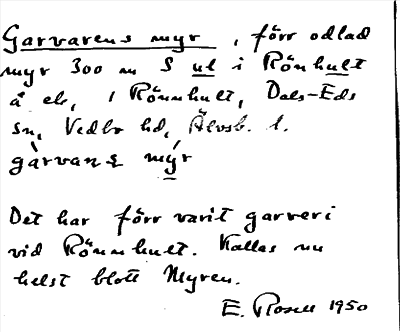 Garvarens myr, förr odlad
myr 300 m S ul i Rönhult
å ek, 1 Rönnhult, Dals-Eds
sn, Vedbo hd, Älvsb. l.
myr
Det har förr varit garveri
vid Rönnhult. Kallas nu
helst blott Myren.
E. Rosell 1950